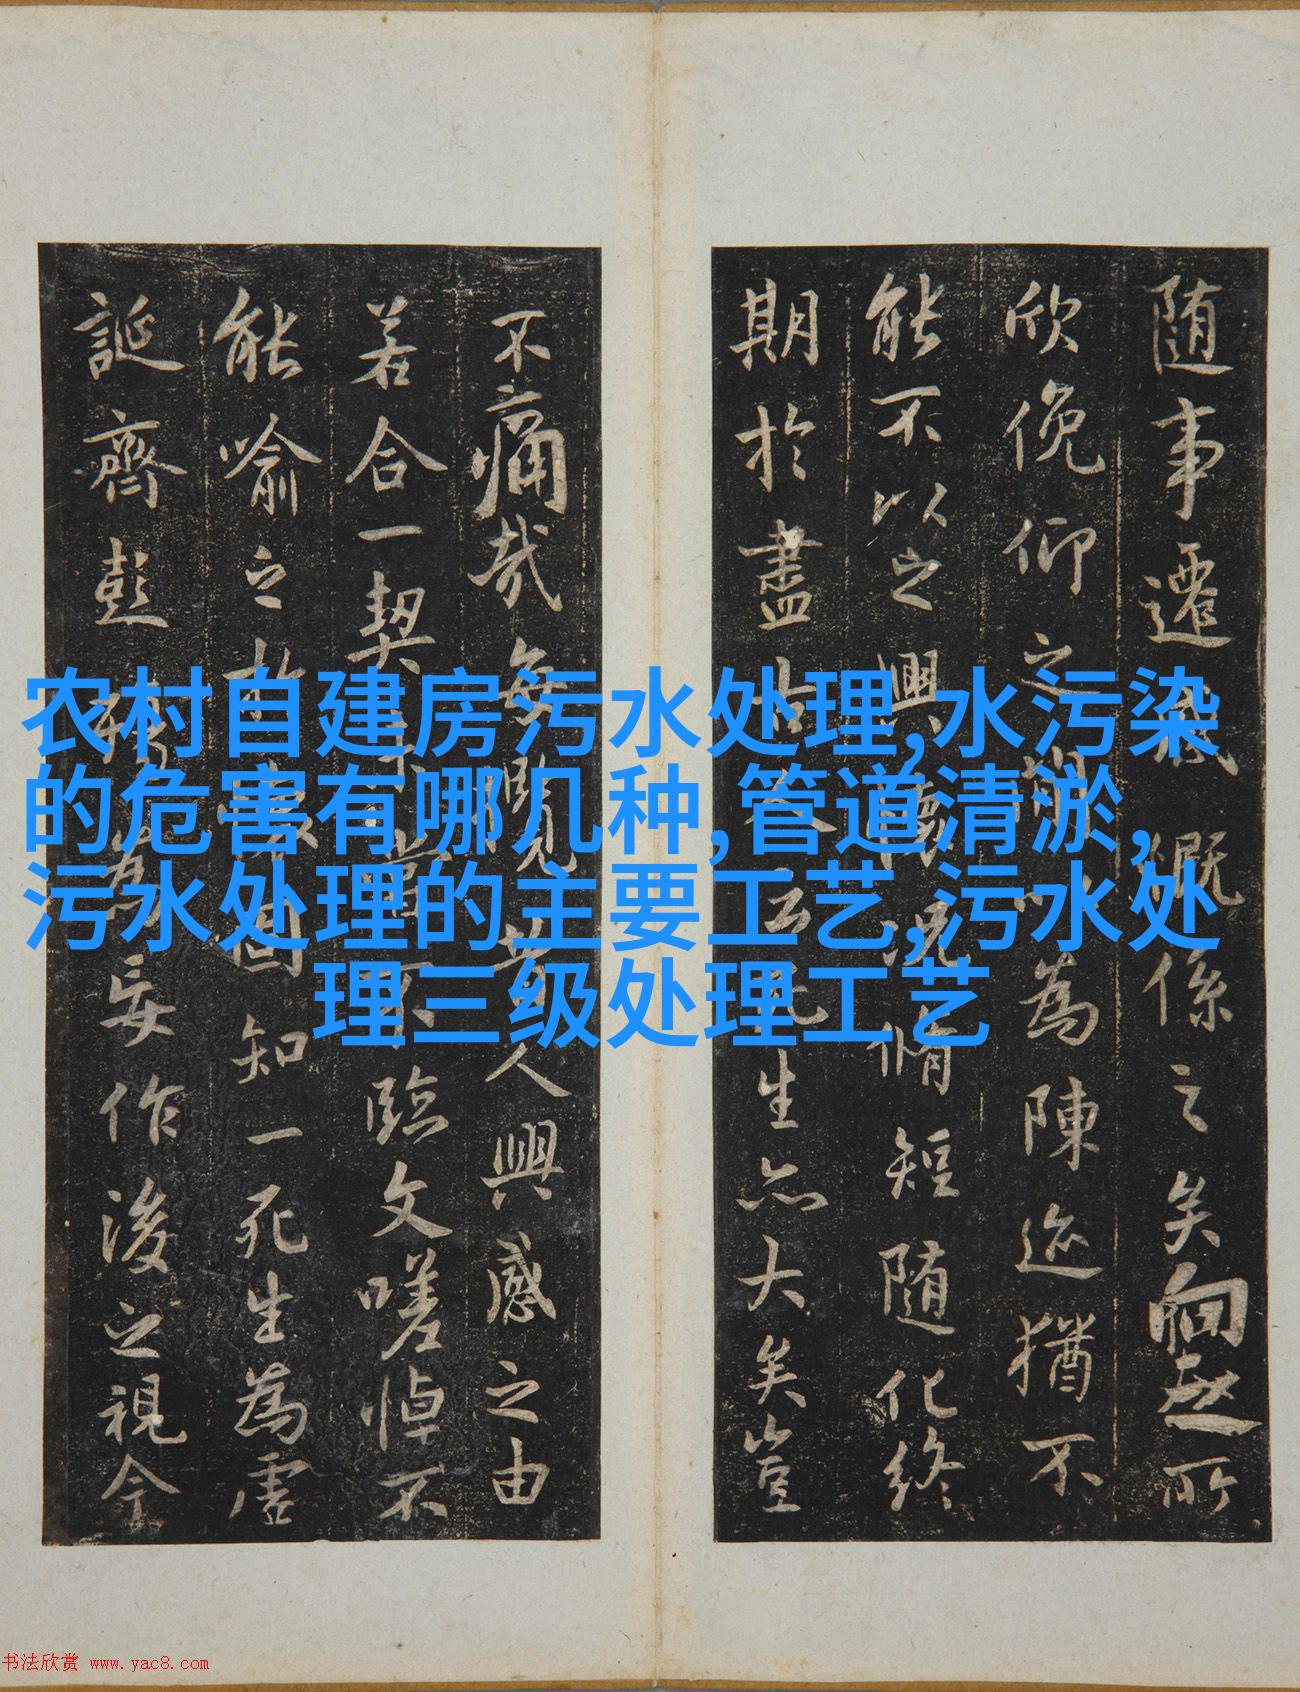 随事遷感慨係之矣向之所
欣俛仰之間以為陳迹猶不
能不以之興懷况脩短随化終
期於盡古人云死生亦大矣豈
不痛哉每覽昔人興感之由
若合一契未嘗不臨文嗟悼不
能喻之於懷固知一死生為虛
誕齊彭殤為妄作後之視今
农村自建房污水处理,水污染
的危害有哪几种,管道清淤,
污水处理的主要工艺,污水处
理三级处理工艺
书法欣赏 www.yac8.com